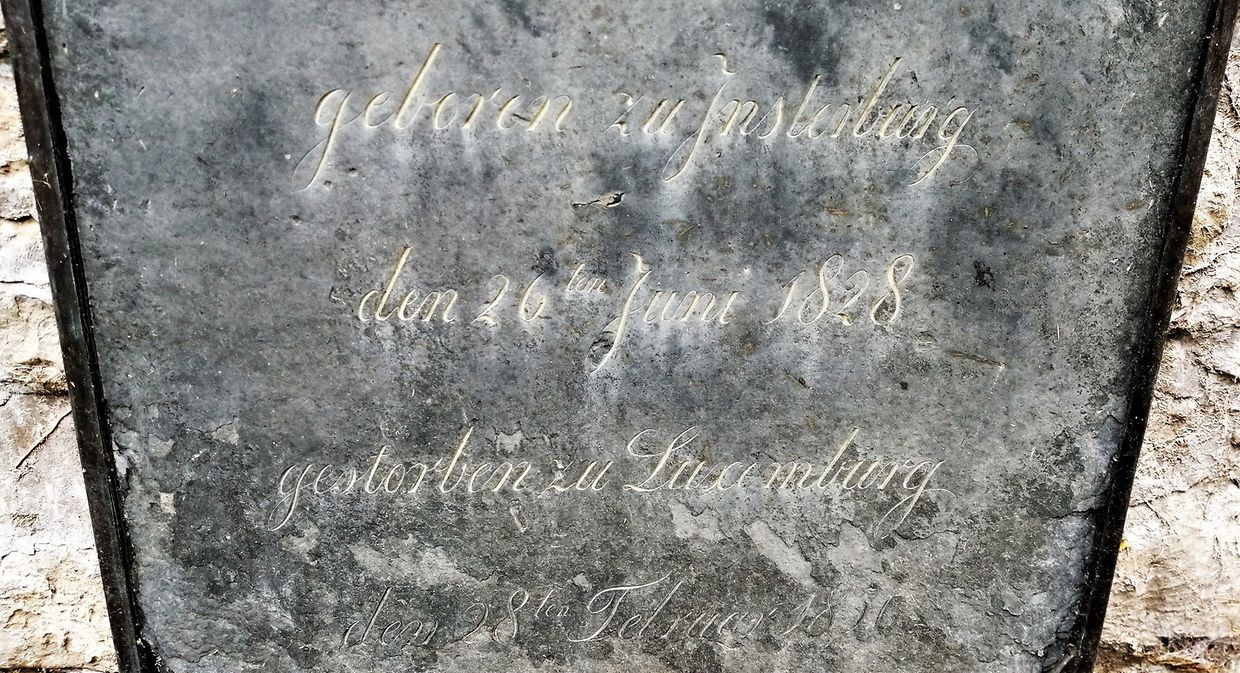 geboren zu Insterburg
den 26ten Juni 1828
gestorben zu Luxemburg
den 28ten Februar